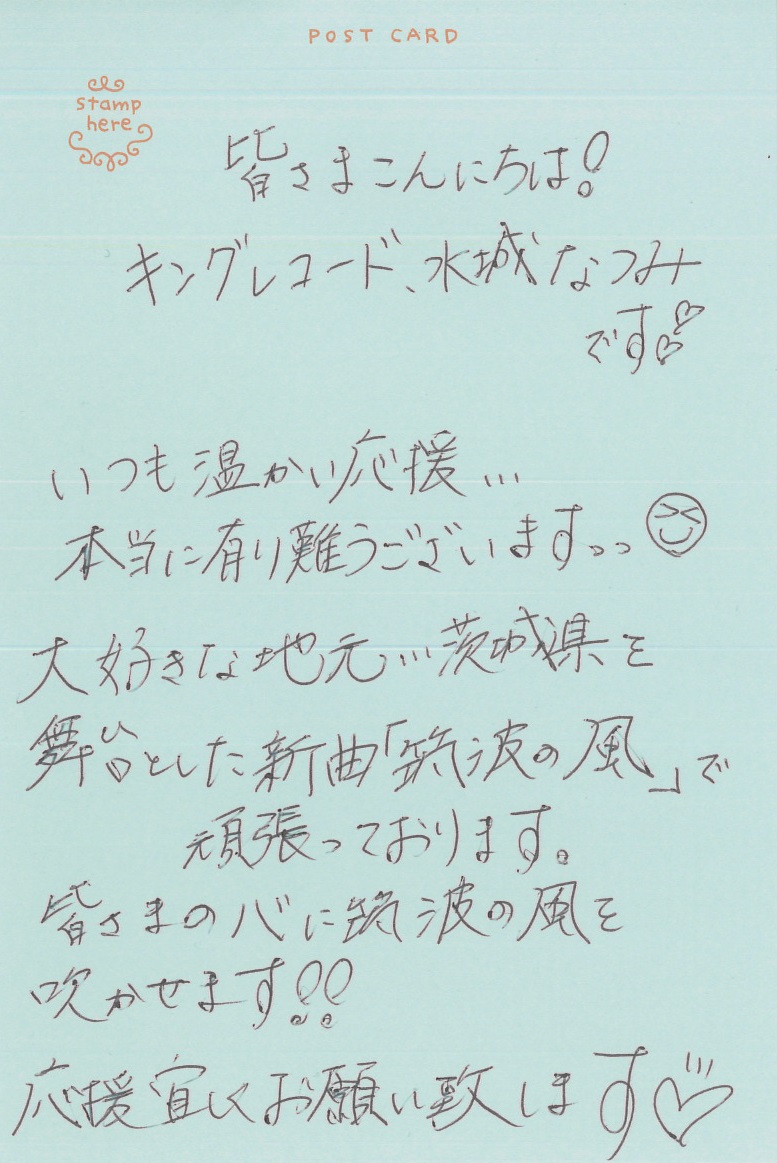 POST CARD
stamp
here
皆さまこんにちは!
キングレコード、水城なつみ
です♡♡
いつも温かい応援...
本当に有り難うございますっっ
大好きな地元...茨城県を
舞台とした新曲「筑波の風」で
頑張っております。
皆さまの心に筑波の風を
吹かせます!!
応援宜しくお願い致します♡